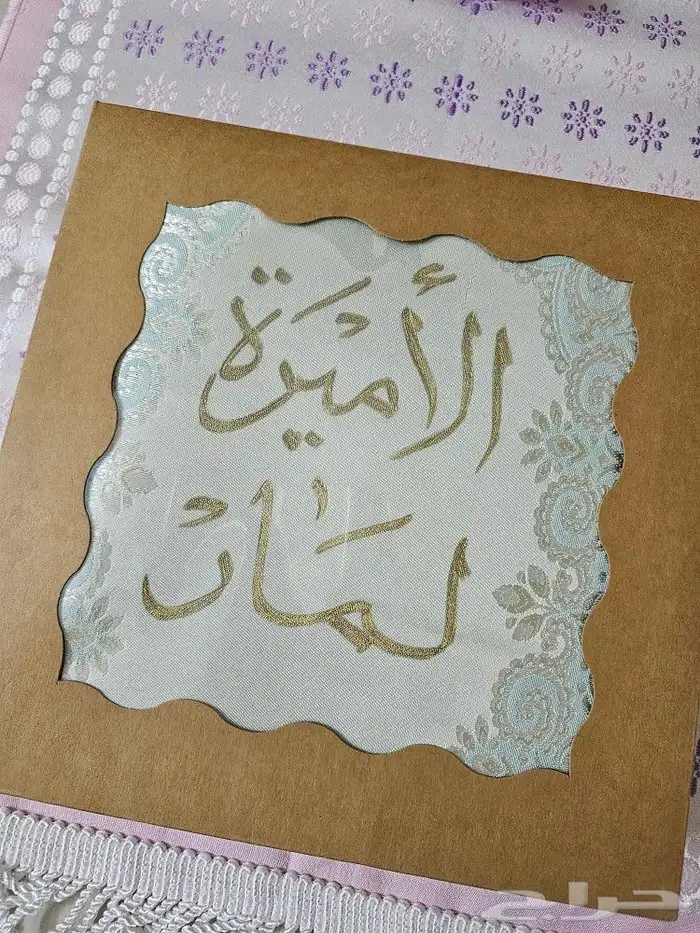 الأميرة
لمار
حراج